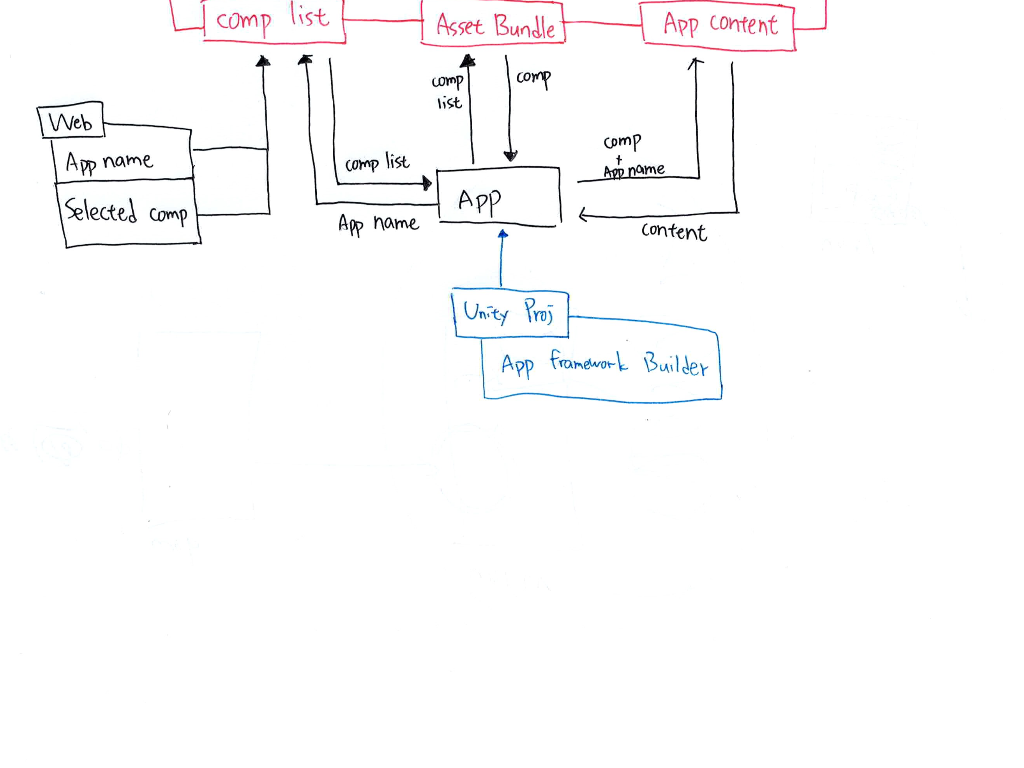 comp list
Asset Bundle
App content
comp
list
comp
Web
App name
Selected comp
comp list
App name
App
comp
+
App name
content
Unity Proj
App framework Builder